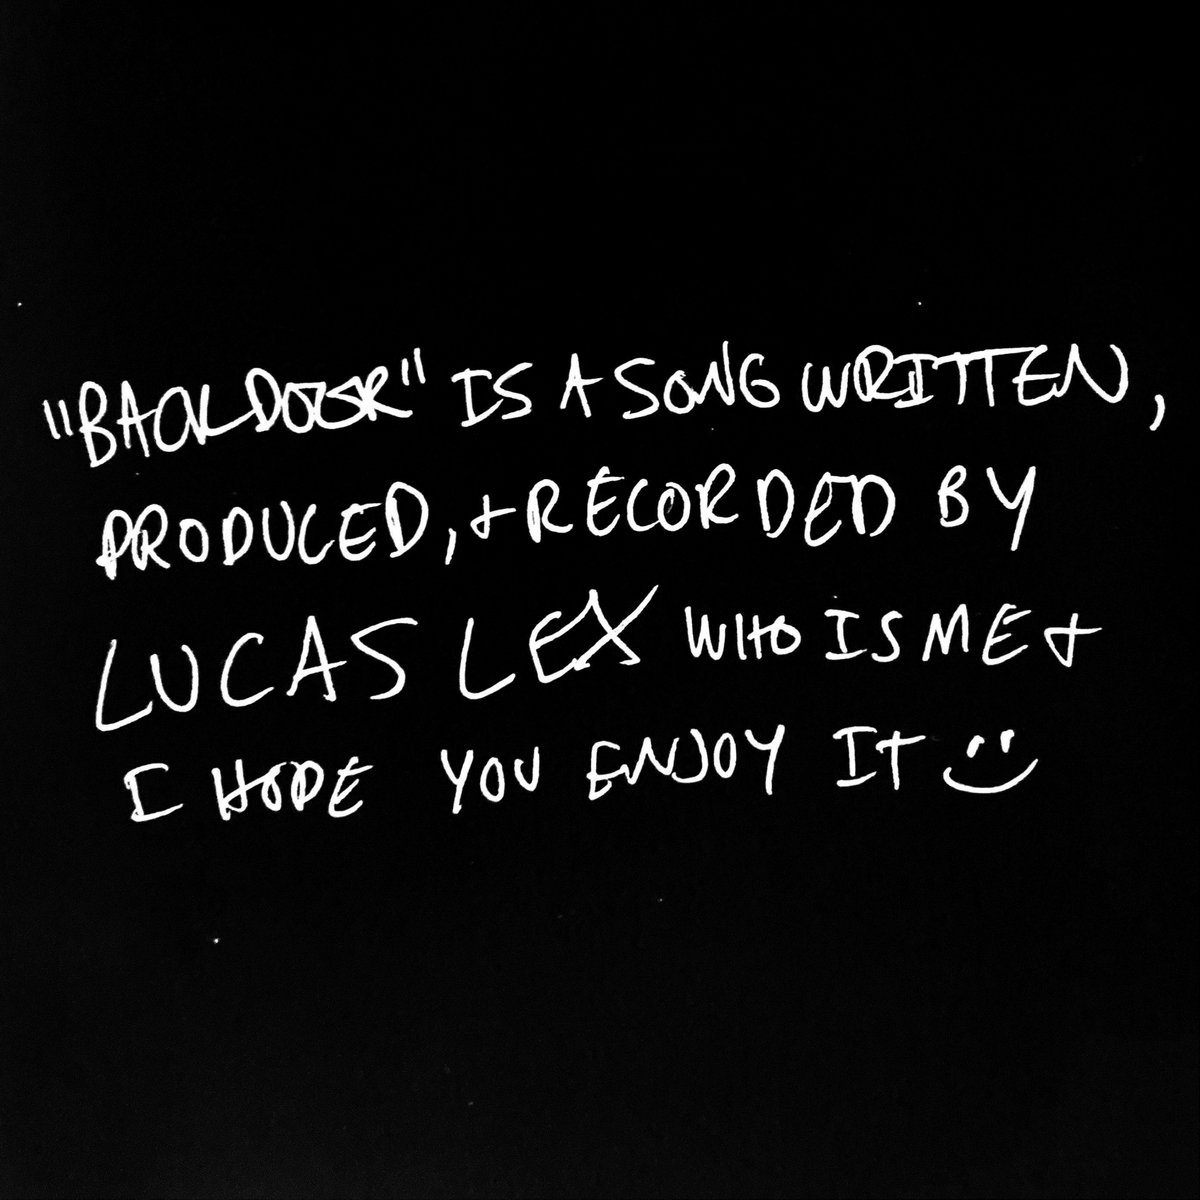 "BACKDOOR" IS A SONG WRITTEN,
PRODUCED, + RECORDED BY
LUCAS LEX WHO IS ME +
I HOPE YOU ENJOY IT